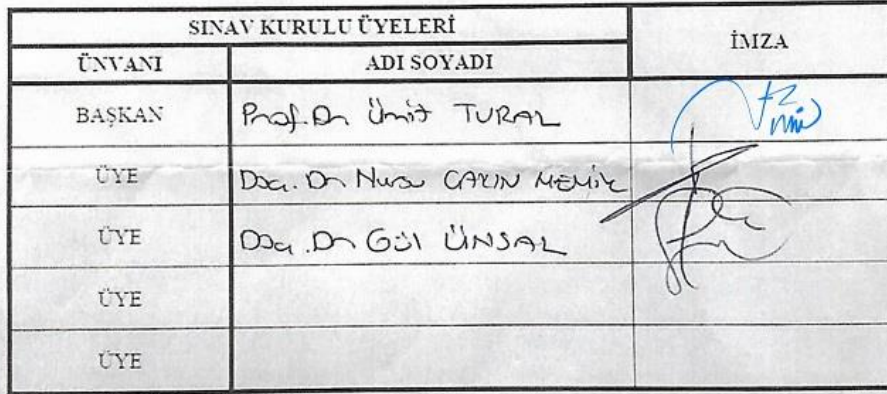 SINAV KURULU ÜYELERİ
İMZA
ÜNVANI ADI SOYADI
BAŞKAN Prof. Dr Ümit TURAL
ÜYE Doç. Dr Nursu ÇAKIN MEMİK
ÜYE Doç. Dr Gül ÜNSAL
ÜYE
ÜYE